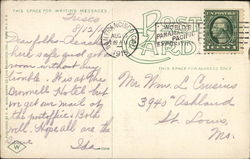 THIS SPACE FOR WRITING MESSAGES
POST CARD
THIS SPACE FOR ADDRESS ONLY
Frisco
8/12/15
Dear folks - Reached
here safe and got a
room without any
trouble. Was at the
Brownell Hotel but
we get our mail at
the postoffice. Both
well. Hope all are the
same
Ida
AUG
1915
WORLD'S
PANAMA PACIFIC
EXPOSITION
Mr. Wm L. Cousins
3945 Ashland
St. Louis,
Mo.